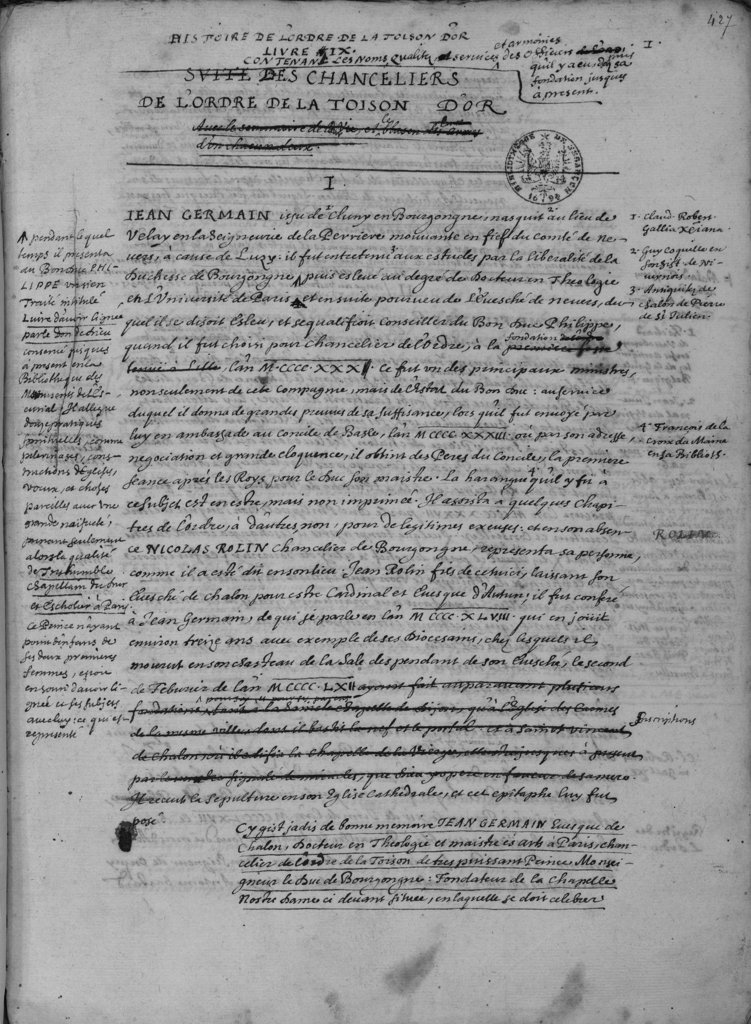 427
HISTOIRE DE L'ORDRE DE LA TOISON D'OR
LIVRE IX.
CONTENANT Les Noms, qualitez et services des Officiers
et armoiries
qu'il y a eu, depuis sa
fondation jusques
à present.
1.
SVITE DES CHANCELIERS
DE L'ORDRE DE LA TOISON D'OR
Avec le sommaire de
d'un chacun d'eux.
BIBLIOTHEQUE DE BESANCON
1694
I.
IEAN GERMAIN issu de Cluny en Bourgongne, nasquit au lieu de
Velay en la Seigneurie de la Perriere mouvante en fief du Comté de Ne-
vers, à cause de Luzy: il fut entretenu aux estudes par la liberalité de la
Duchesse de Bourgongne, puis eslevé au degré de Docteur en Theologie
en L'Université de Paris, et en suite pourveu de L'Evesché de nevers, du
quel il se disoit Esleu, et se qualifioit Conseiller du Bon Duc Philippe,
quand il fut choisi pour Chancelier de l'ordre, à la premiere
fondation
tenuë à Lille, l'an M.CCCC.XXXI. Ce fut un des principaux ministres,
non seulement de cete Compagnie, mais de l'Estat du Bon Duc: au service
duquel il donna de grandes preuves de sa suffisance, lors qu'il fut envoyé par
luy en ambassade au Concile de Basle, l'an MCCCC XXXIII. où par son adresse,
negociation et grande eloquence, il obtint des Peres du Concile, la premiere
seance aprés les Roys, pour le Duc son maistre. La harangue qu'il y fit à
ce subject est en estre, mais non imprimée. Il assista à quelques Chapi-
tres de l'ordre, à d'autres non, pour de legitimes excuses: et en son absen-
ce NICOLAS ROLIN Chancelier de Bourgongne, representa sa personne,
comme il a esté dit en son lieu. Jean Rolin fils de cetuici, laissant son
Evesché de Chalon pour estre Cardinal et Evesque d'Autun, il fut conferé
à Jean Germain, de qui se parle en l'an MCCCC XLVIII. qui en jouit
environ treize ans avec exemple de ses Diocesains, chez lesquels il
mourut en son Chasteau de la Sale dependant de son Evesché, le second
de Febvrier de l'an MCCCC.LXII ayant fait auparavant plusieurs
fondations, tant à la Saincte Chapelle de Dijon, qu'à l'Eglise des Carmes
de la mesme ville, dont il bastit la nef et le portal. et à Sainct Vincent
de Chalon, où il edifia la Chapelle de la Vierge,
que Dieu y opere en faveur de sa mere.
Il receut la sepulture en son Eglise Cathedrale, et cet epitaphe luy fut
posé
Cy gist jadis de bonne memoire JEAN GERMAIN Evesque de
Chalon, Docteur en Theologie et maistre es arts à Paris, chan-
celier de l'Ordre de la Toison de tres puissant Prince Monsei-
gneur le Duc de Bourgongne: Fondateur de la Chapelle
Nostre Dame ci devant située, en laquelle se doit celebrer
pendant lequel
temps il presenta
au Bon Duc PHI-
LIPPE un sien
Traité intitulé
Luire d'avoir lignee
par le don de Dieu
contenu jusques
à present en la
Bibliotheque des
Manuscrits de l'Es-
curial. Il allegue
douze pratiques
spirituelles, comme
pelerinages, cons-
tructions d'Eglises,
voeux, et choses
pareilles avec une
grande naifueté,
prenant seulement
alors la qualité
de Treshumble
Chapellain du Duc
et Escholier à Paris
Ce Prince n'ayant
point d'enfans de
ses deux premieres
femmes, estoit
en souci d'avoir li-
gnée et ses subjets
avec luy: ce qui est
representé
1. Claud. Robert.
Gallia Xpiana.
2. Guy Coquille en
son hist. de Ni-
vernois
3. Antiquitez de
Chalon de Pierre
de St Julien.
4. François de la
Croix du Maine
en sa Biblioth.
ROLIN.
Inscriptions